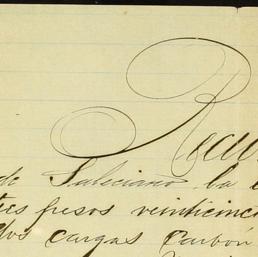 Reciví
de Saliciano la c
tres pesos veinticinc
dos cargas carbón